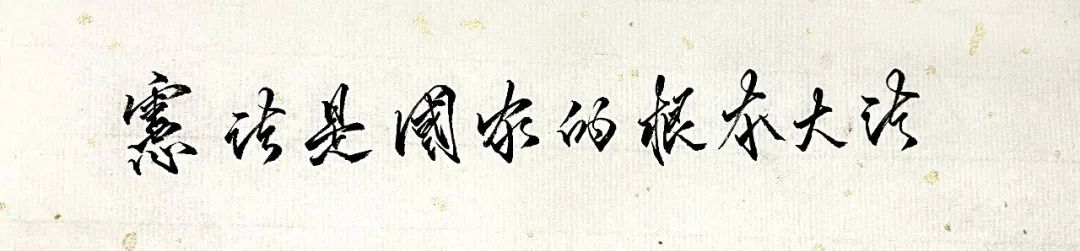 憲法是國家的根本大法